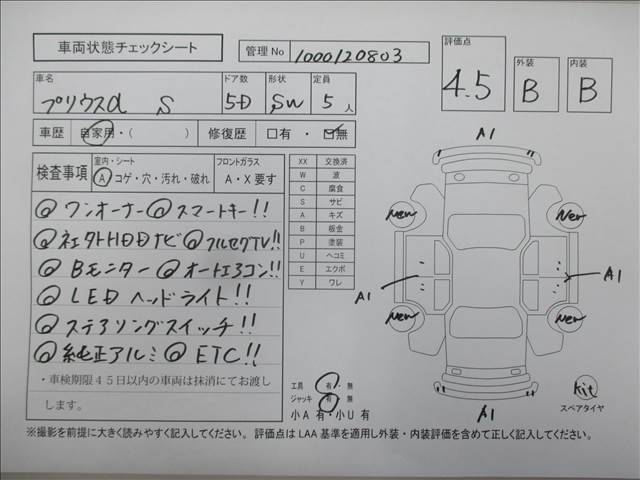 車両状態チェックシート
管理No 1000120803
評価点 4.5
外装 B
内装 B
車名 プリウスα S
ドア数 5D
形状 SW
定員 5人
車歴 自家用・( )
修復歴 □有 ・ ☑無
検査事項
室内・シート
A コゲ・穴・汚れ・破れ
フロントガラス
A・X要す
◎ワンオーナー◎スマートキー!!
◎純正HDDナビ◎フルセグTV!!
◎Bモニター◎オートエアコン!!
◎LEDヘッドライト!!
◎ステアリングスイッチ!!
◎純正アルミ◎ETC!!
・車検期限45日以内の車両は抹消にてお渡し
します。
XX 交換済
W 波
C 腐食
S サビ
A キズ
B 板金
P 塗装
U ヘコミ
E エクボ
Y ワレ
A1
New
New
A1
A1
New
New
A1
工具 有・無
ジャッキ 有・無
小A 有・小U 有
Kit
スペアタイヤ
※撮影を前提に大きく読みやすく記入してください。 評価点は LAA 基準を適用し外装・内装評価を含めて正しく記入してください。